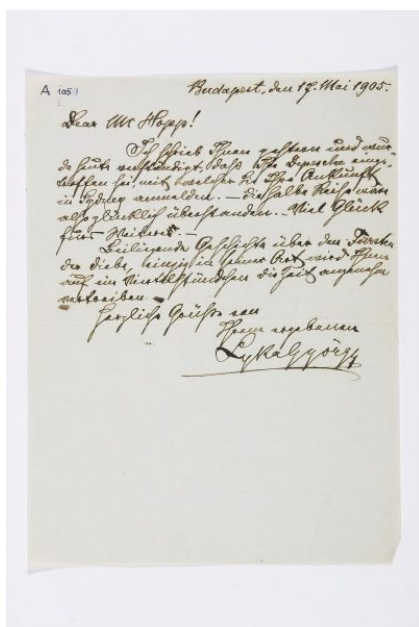 A 105
Budapest, den 17. Mai 1905.
Dear Mr Hopp!
Ich schrieb Ihnen gestern und wur-
de heute verständigt, daß Ihre Depesche einge-
troffen sei, mit welcher Sie Ihre Ankunft
in Sydney anmelden. — die halbe Reise wäre
also glücklich überstanden. — Viel Glück
fürs Weitere. —
Beiliegende Geschichte über den Fürsten
der Diebe, einzig in seiner Art, wird Ihnen
auf ein Viertelstündchen die Zeit angenehm
vertreiben. —
Herzliche Grüße von
Ihrem ergebenen
Lyka György